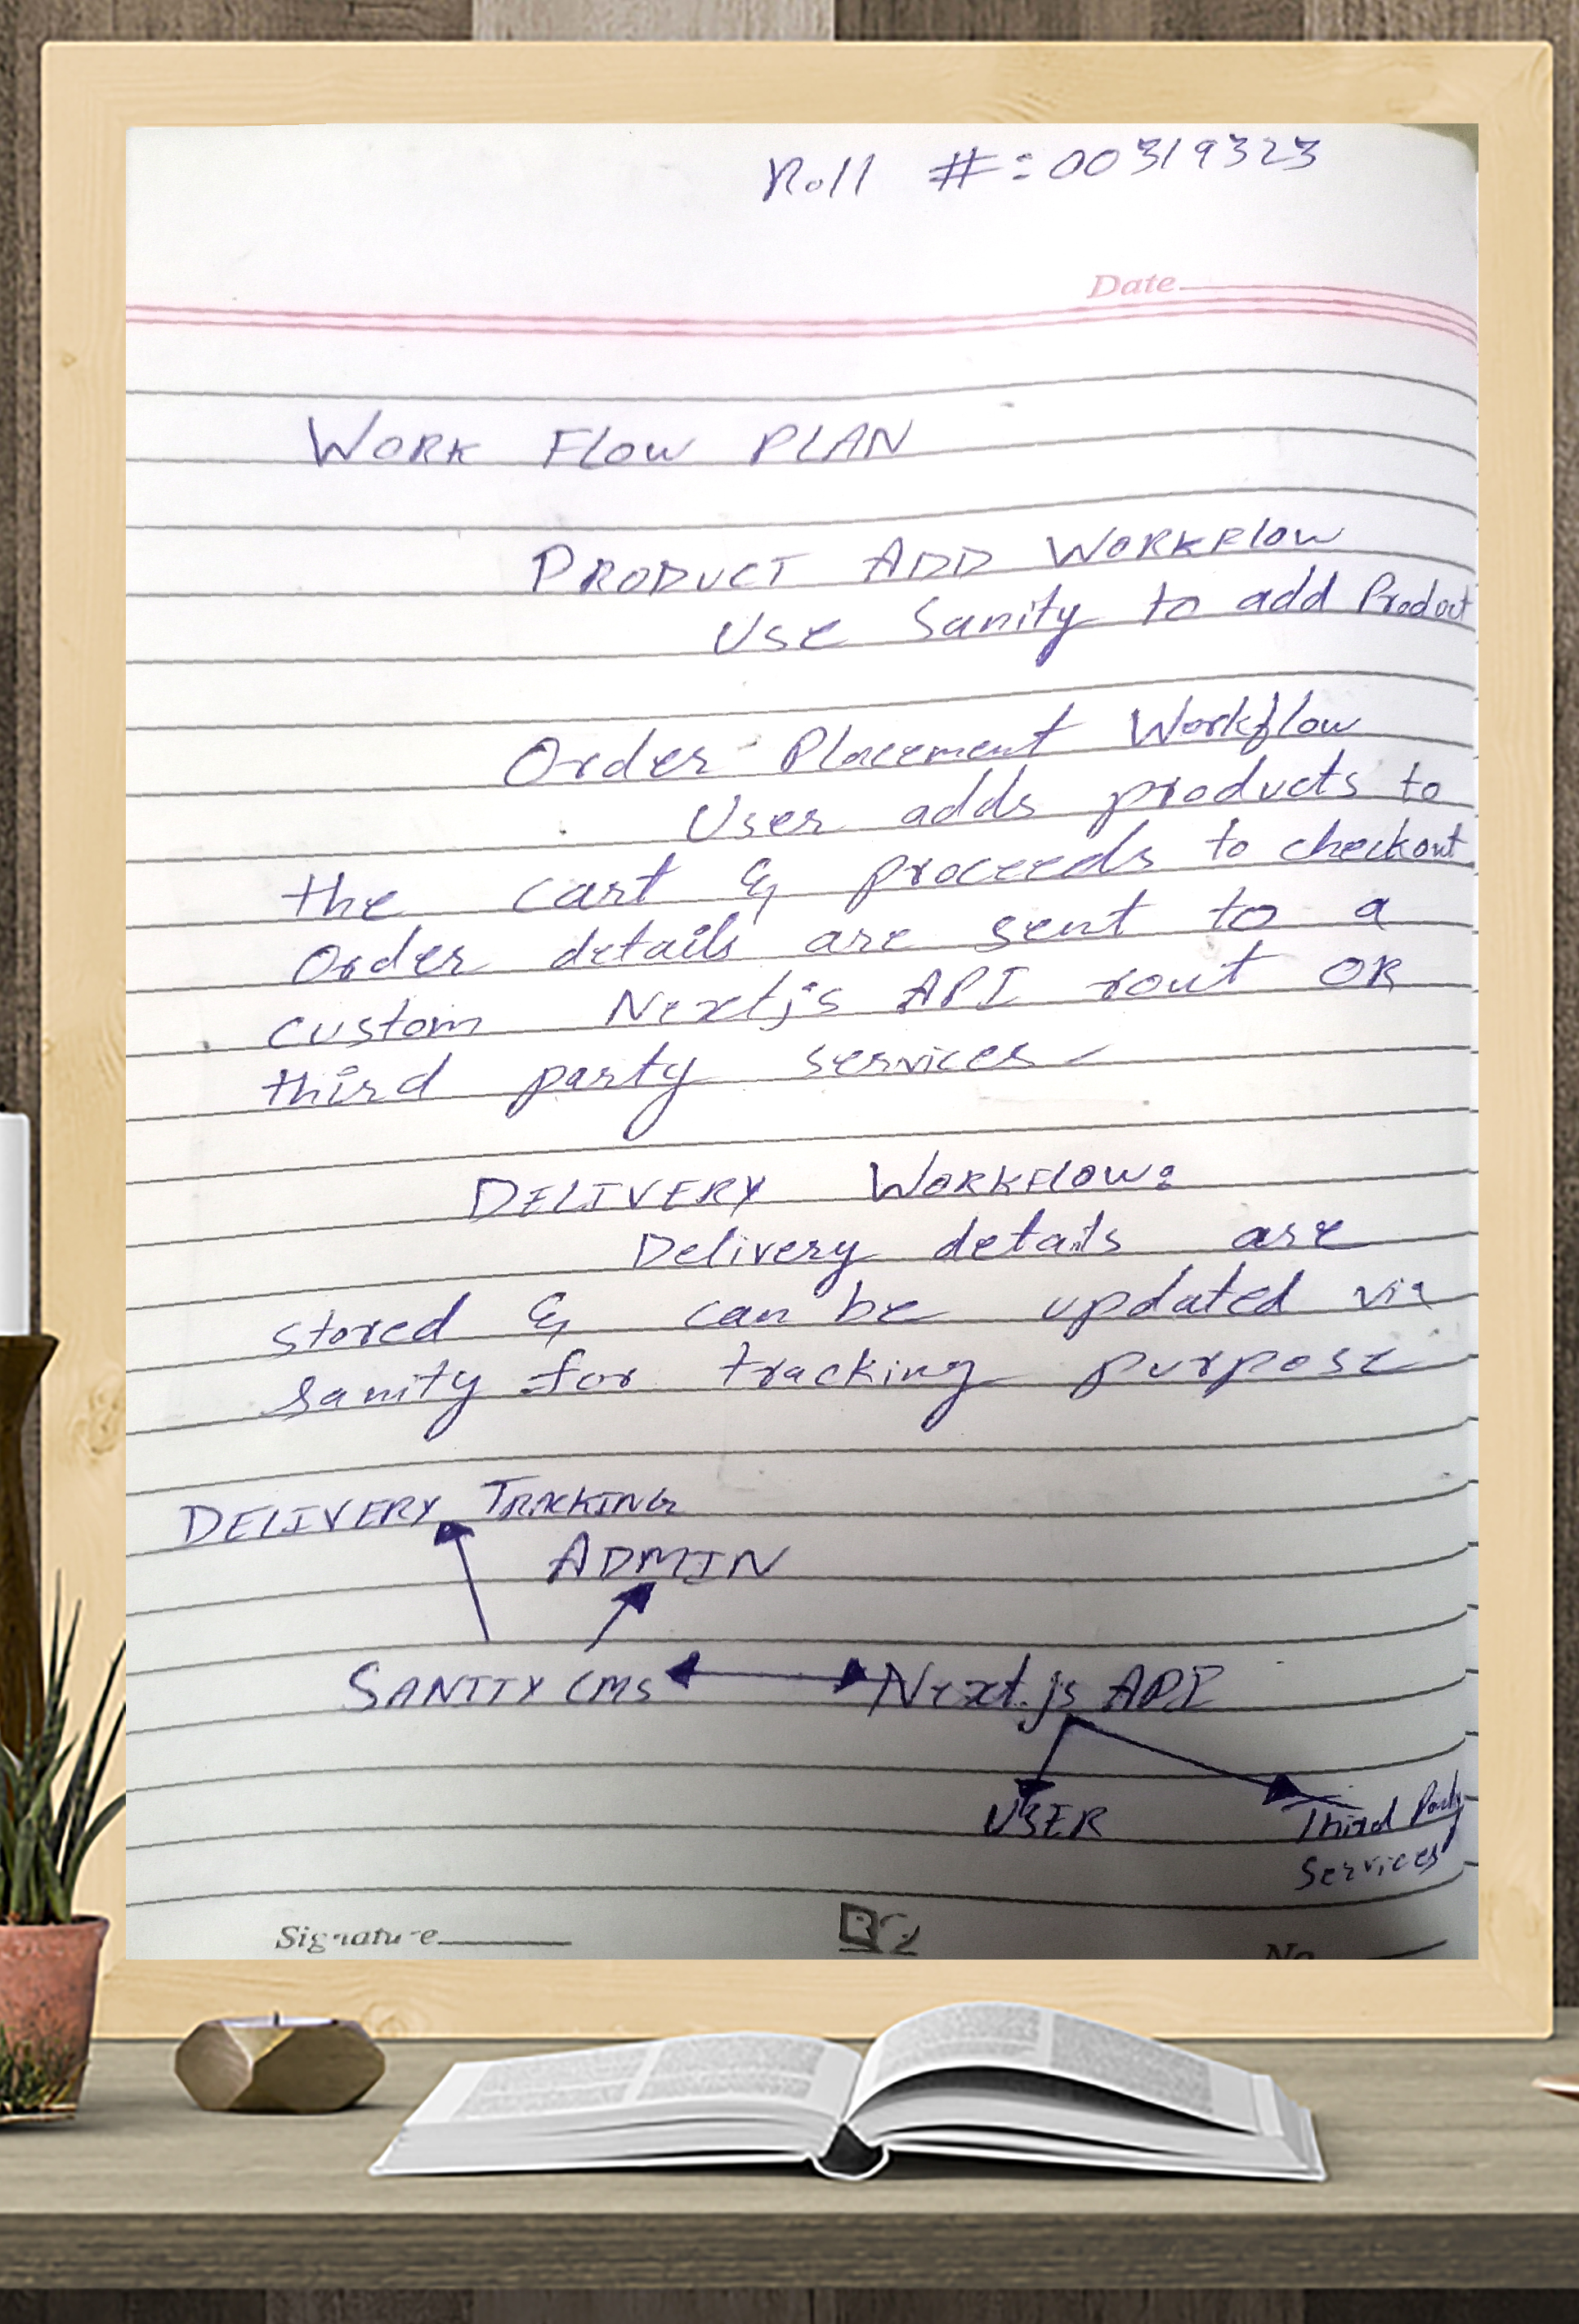 Roll #:00319323
Date
WORK FLOW PLAN
PRODUCT ADD WORKFLOW
Use Sanity to add Product
Order Placement Workflow
User adds products to
the cart & proceeds to checkout
Order details are sent to a
custom Nextjs API rout OR
third party services
DELIVERY WORKFLOW:
Delivery details are
stored & can be updated via
sanity for tracking purpose
DELIVERY TRACKING
ADMIN
SANITY CMS Next.js API
USER Third Party
Services
Signature
No